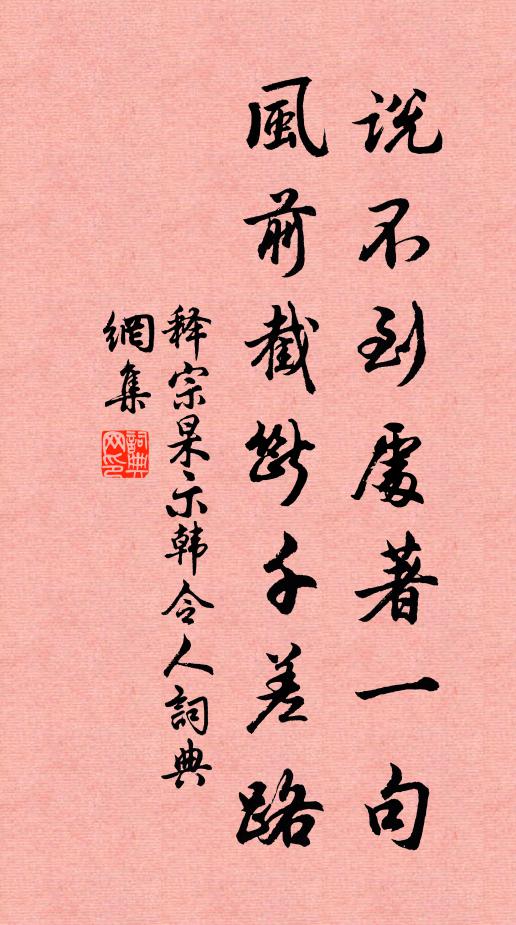 説不到處著一句
風前截斷千差路
释宗杲示韩令人詞典
網集
詞典
网印